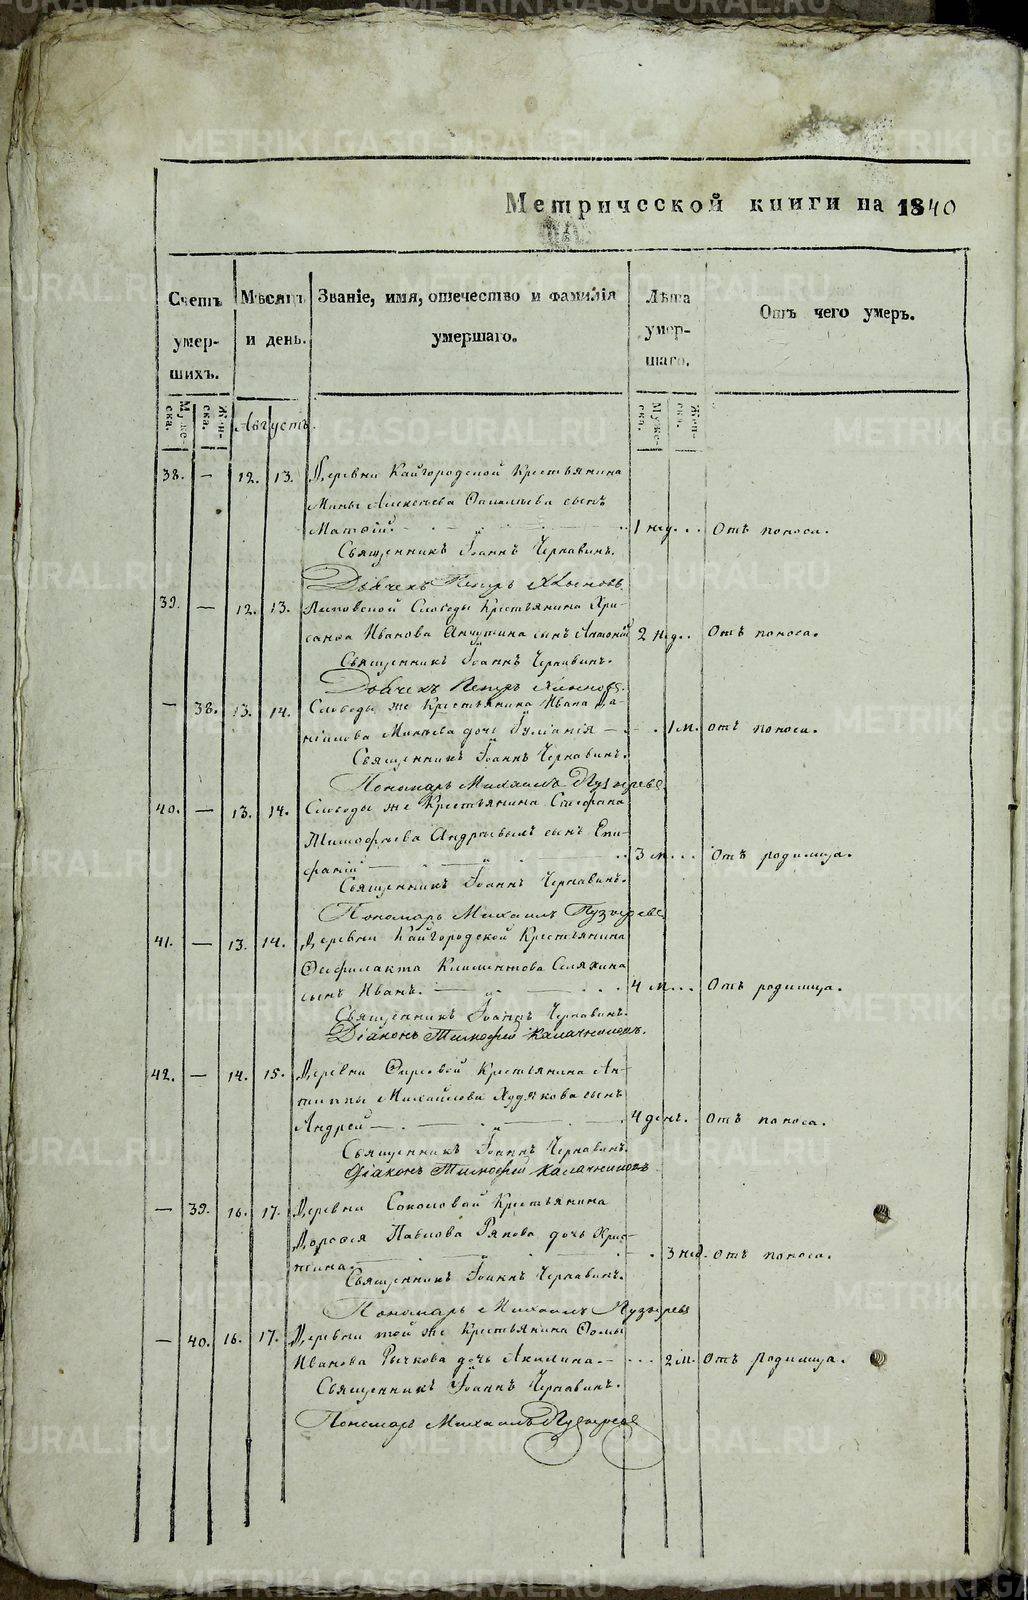 Метрической книги на 1840
Счетъ умер- шихъ.
Мужс- ска.
Жен- ска.
Мѣсяцъ и день.
Августъ.
Званіе, имя, отечество и фамилія умершаго.
Лѣта умер- шаго.
Мужс- ска.
Жен- ска.
Отъ чего умеръ.
38. — 12. 13. Деревни Кайгородской Крестьянина
Мины Алексѣева сынъ
Матѳій. 1 нед... Отъ поноса.
Священникъ Іоаннъ Чернавинъ.
Дьячекъ Петръ
39. — 12. 13. Липовской Слободы Крестьянина Хри-
санѳа Иванова Анчутина сынъ Антоній 2 нед.. Отъ поноса.
Священникъ Іоаннъ Чернавинъ.
Дьячекъ Петръ
— 38. 13. 14. Слободы же Крестьянина Ивана Да-
ніилова дочь Іуліанія — 1 м. отъ поноса.
Священникъ Іоаннъ Чернавинъ.
Пономарь Михаилъ Пузыревъ
40. — 13. 14. Слободы же Крестьянина Стефана
Тимофѣева Андреевыхъ сынъ Епи-
фаній — 3 м... Отъ родимца.
Священникъ Іоаннъ Чернавинъ.
Пономарь Михаилъ Пузыревъ
41. — 13. 14. Деревни Кайгородской Крестьянина
Ѳеофилакта Климентова
сынъ Иванъ. — 4 м... Отъ родимца.
Священникъ Іоаннъ Чернавинъ.
Діаконъ Тимофей Калачниковъ.
42. — 14. 15. Деревни Крестьянина Ан-
типпы Михайлова Худякова сынъ
Андрей — 4 ден. Отъ поноса.
Священникъ Іоаннъ Чернавинъ.
Діаконъ Тимофей Калачниковъ
— 39. 16. 17. Деревни Соколовой Крестьянина
Дороѳея Павлова Ряпова дочь Хрис-
тина. 3 нед. отъ поноса.
Священникъ Іоаннъ Чернавинъ.
Пономарь Михаилъ Пузыревъ
— 40. 16. 17. Деревни той же Крестьянина Ѳомы
Иванова Рычкова дочь Акилина. — 2 м. Отъ родимца.
Священникъ Іоаннъ Чернавинъ.
Пономарь Михаилъ Пузыревъ
METRIKI.GASO-URAL.RU